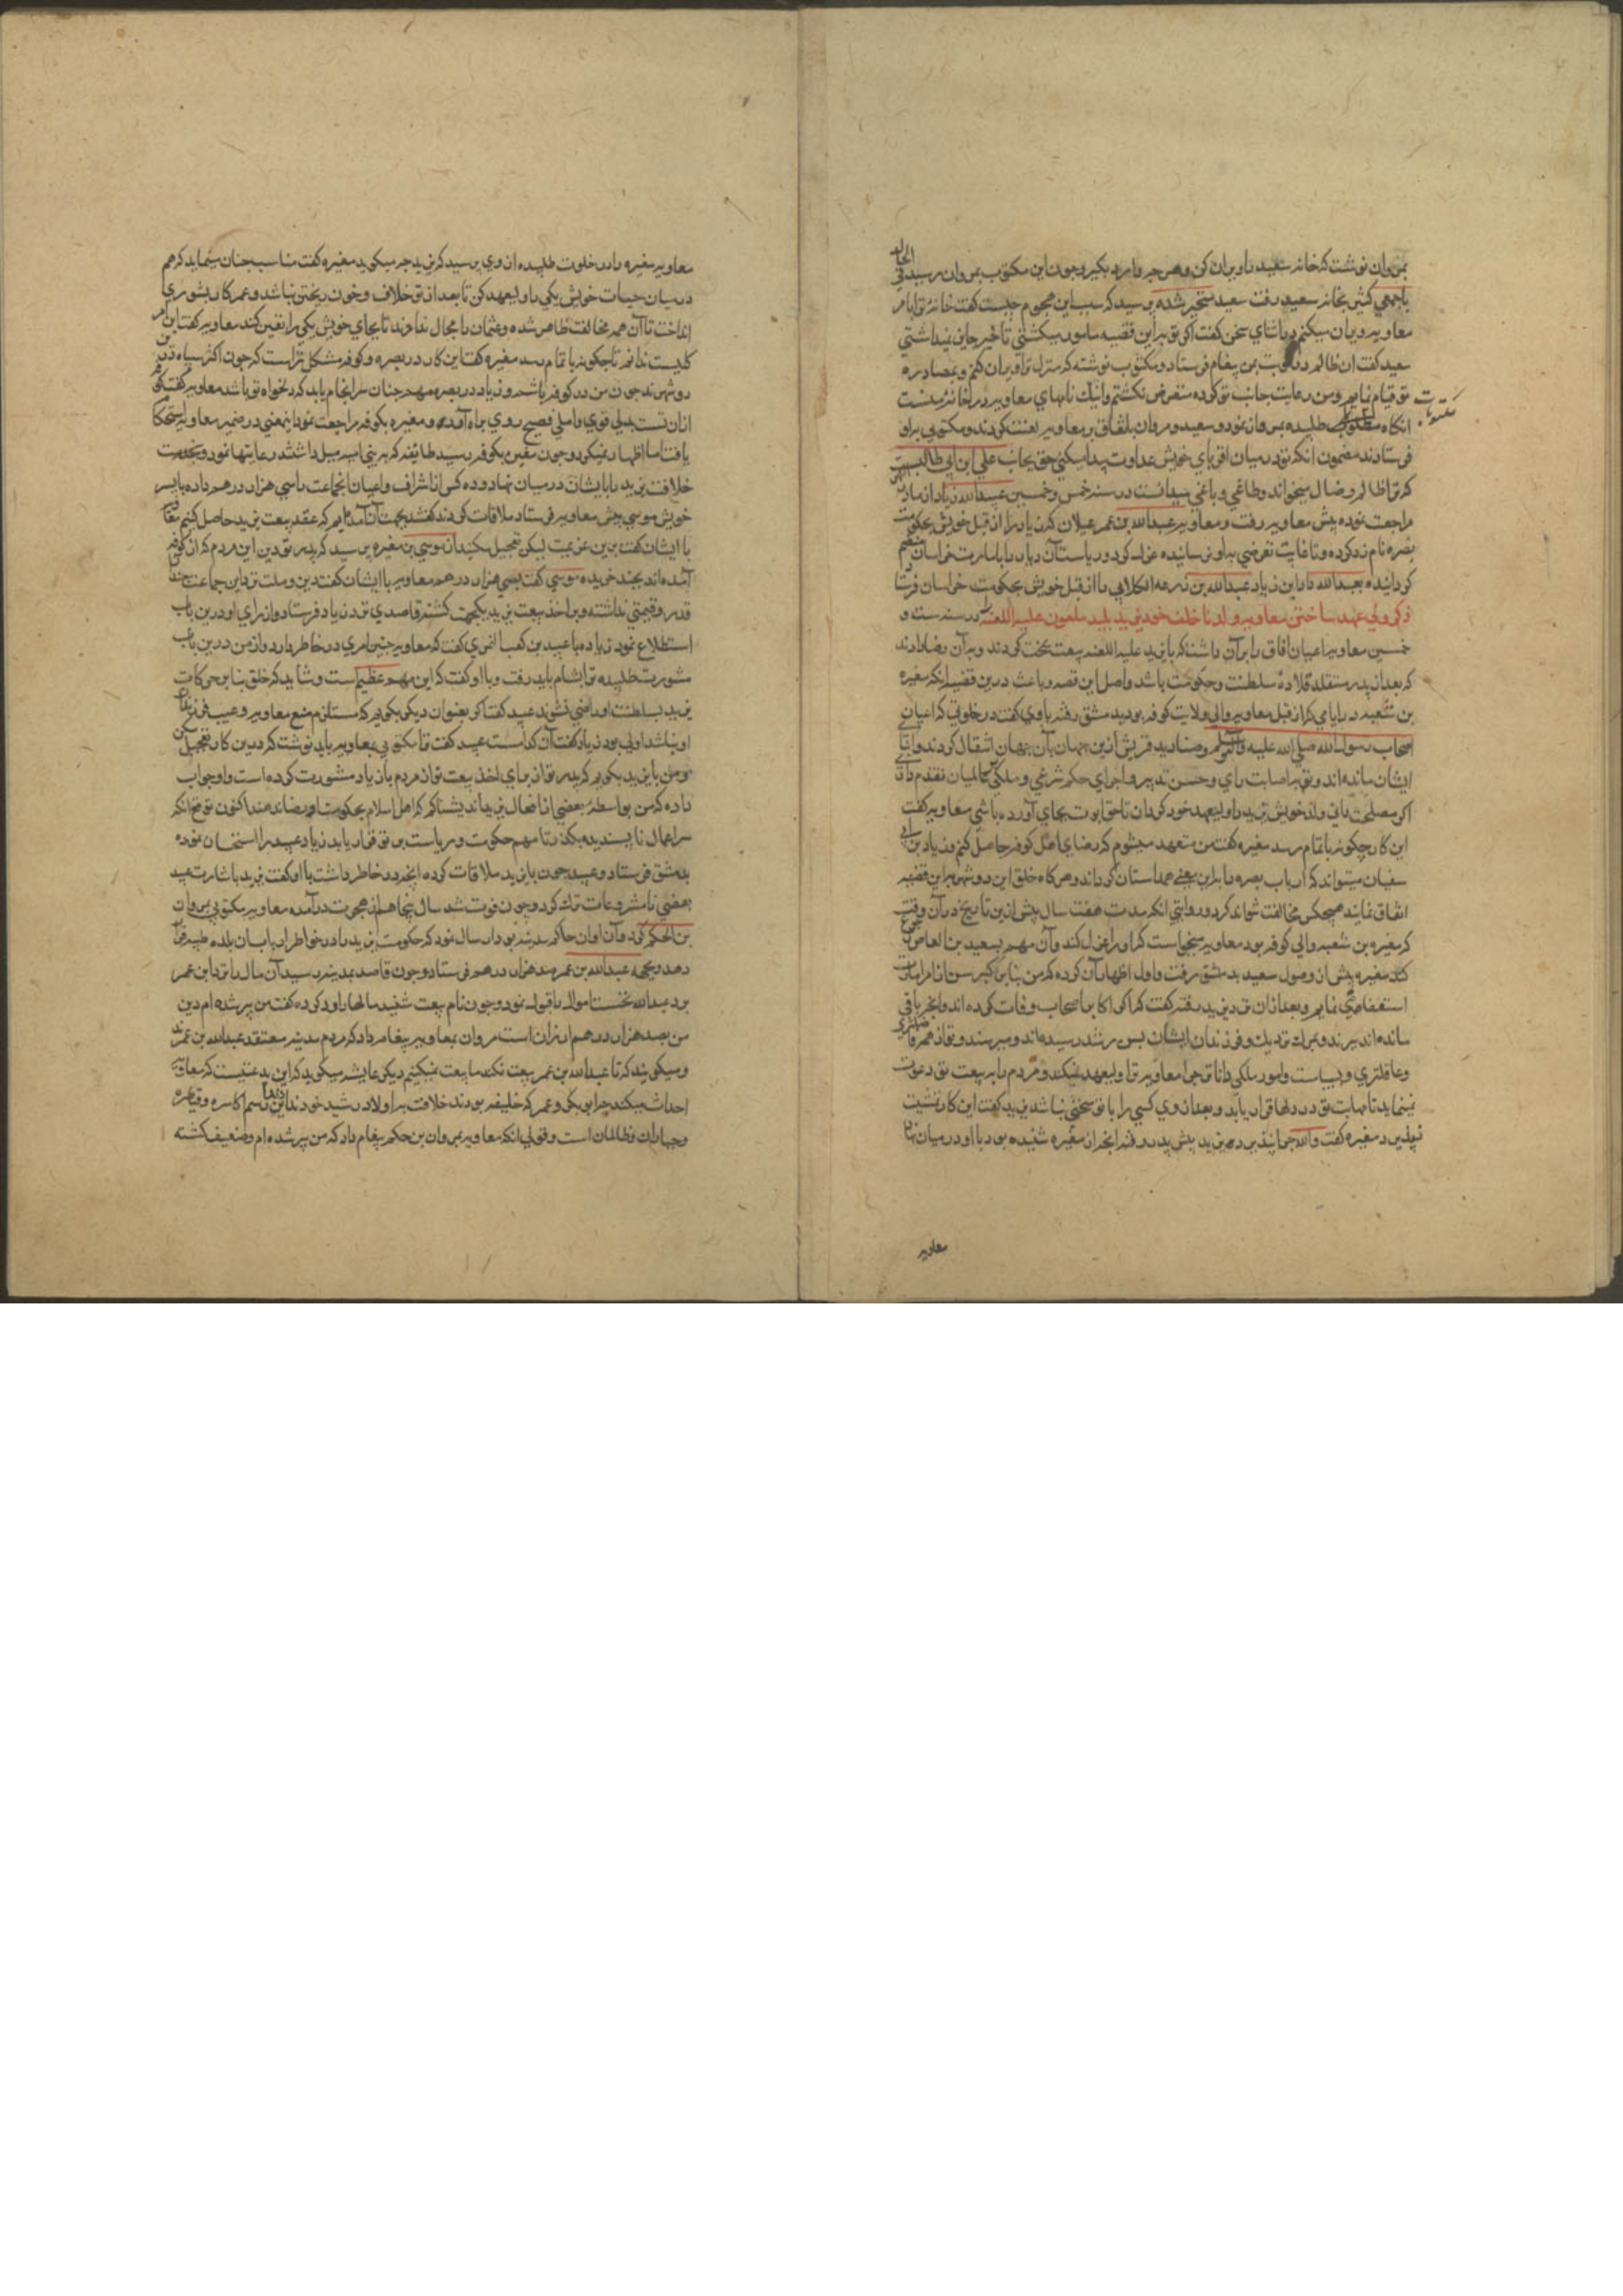 بمروان نوشت که خانه سعید را ویران کن و هرچه دارد بگیر و چون این مکتوب بمروان رسید فی الحال
با جمعی کثیر بخانه سعید رفت سعید متحیر شده پرسید که سبب این هجوم چیست کفت خانه ترا بامر
معاویه ویران میکنم در اثنای سخن کفت اکر تو براین قضیه مامور میکشتی تاخیر جایز نمیداشتی
سعید کفت ان ظالم دو نوبت بمن پیغام فرستاد و مکتوب نوشته که منزل ترا ویران کنم و بمصادره
تو قیام نمایم و من رعایت جانب تو کرده متعرض نکشتم و اینک نامهای معاویه در خانه منست
انکاه مکتوبات طلبیده بمروان نمود و سعید و مروان باتفاق بر معاویه لعنت کردند و مکتوبی براو
فرستادند مضمون انکه تو در میان اقربای خویش عداوت پیدا میکنی حق بجانب علی ابن ابی طالبست
که ترا ظالم و ضال میخواند و طاغی و باغی میدانست در سنه خمس و خمسین عبیدالله زیاد از
مراجعت نموده پیش معاویه رفت و معاویه عبدالله بن عمر غیلان که زیاد را از قبل خویش بحکومت
بصره نامزد کرده
کردانیده بعبدالله داد ابن زیاد عبدالله بن زرعه الکلابی را از قبل خویش بحکومت خراسان فرستاد
ذکر ولی عهد ساختن معاویه ولد ناخلف خود یزید پلید ملعون علیه اللعنه در سنه سته و
خمسین معاویه اعیان افاق را بر آن داشت که با یزید علیه اللعنه بیعت کردند و بر آن رضا دادند
که بعد از پدر متقلد قلاده سلطنت و حکومت باشد و اصل این قصه و باعث در این قضیه انکه مغیره
بن شعبه در ایامی که از قبل معاویه والی ولایت کوفه بود بدمشق رفته با وی کفت در خلوتی که اعیان
اصحاب رسول الله صلی الله علیه و آله وسلم و صنادید قریش ازین جهان بآن جهان انتقال کردند و ابنای
ایشان مانده اند و تو باصابت رای و حسن تدبیر و اجرای حکم شرعی و ملکی بر عالمیان تقدم داری
اکر مصلحت دانی ولد خویش یزید را ولیعهد خود کردان تا حق ابوت بجای آورده باشی معاویه کفت
این کار چکونه باتمام رسد مغیره کفت من متعهد میشوم که رضای اهل کوفه حاصل کنم و زیاد بن ابی
سفیان میتواند که ارباب بصره را براین معنی همداستان کرداند و هرکاه خلق این دو شهر براین قضیه
اتفاق نمایند هیچکس مخالفت نتواند کرد و روایتی انکه مدت هفت سال پیش ازین تاریخ در آن وقت
که مغیره بن شعبه والی کوفه بود معاویه میخواست که او را عزل کند و آن مهم بسعید بن العاص رجوع
کند مغیره پیش از وصول سعید بدمشق رفت و اول اظهار آن کرده که من بنا بر کبر سن از امارت
استعفا می نمایم و بعد از ان نزد یزید رفته کفت که اکابر اصحاب وفات کرده اند و انچه باقی
مانده اند پیرند و بمرک نزدیک و فرزندان ایشان بسن رشد رسیده اند و میرسند و تو از همه فاضلتری
و عاقلتری و بسیاست و امور ملکی داناتر چرا معاویه ترا ولیعهد نمیکند و مردم را به بیعت تو دعوت
نمینماید تا مهابت تو در دلها قرار یابد و بعد از وی کسی را با تو سخنی نباشد یزید کفت این کار تمشیت
پذیرد مغیره کفت والله چرا نپذیرد یزید پیش پدر رفته انچه از مغیره شنیده بود با او در میان نهاد
معاویه
معاویه مغیره را در خلوت طلبیده از وی پرسید که یزید چه میکوید مغیره کفت مناسب چنان مینماید که هم
در میان حیات خویش یکی را ولیعهد کن تا بعد از تو خلاف و خون ریختن نباشد و عمر کار بشوری
انداخت تا آن همه مخالفت ظاهر شده و عثمان را مجال ندادند تا بجای خویش یکی را تعیین کند معاویه کفت این امر
کلیست ندانم تا چکونه باتمام رسد مغیره کفت این کار در بصره و کوفه مشکل تر است که چون اکثر سپاه درین
دو شهرند چون من در کوفه باشم و زیاد در بصره مهم چنان سرانجام یابد که دلخواه تو باشد معاویه کفت
یافت اما اظهار نمیکرد و چون مغیره بکوفه رسید طائفه که به بنی امیه میل داشتند رعایتها نمود و بخدمت
خلافت یزید را با ایشان در میان نهاد و ده کس از اشراف و اعیان انجماعت را سی هزار درهم داده با پسر
خویش موسی پیش معاویه فرستاد ملاقات کردند کفتند بجهت آن آمده ایم که عقد بیعت یزید حاصل کنیم معاویه
با ایشان کفت برین عزیمت لیکن تعجیل مکنید از موسی بن مغیره پرسید که پدر تو دین این مردم که از کوفه
آمده اند بچند خریده موسی کفت بسی هزار درهم معاویه با ایشان کفت دین و ملت نزد این جماعت چندان
قدر و قیمتی نداشته و بر اخذ بیعت یزید یکجهت کشته قاصدی نزد زیاد فرستاد و از رای او درین باب
استطلاع نمود زیاد با عبید بن کعب النمری کفت که معاویه چنین امری در خاطر دارد و از من درین باب
مشورت طلبیده ترا بشام باید رفت و با او کفت که این مهم عظیم است و شاید که خلق بنا بر حرکات
یزید بسلطنت او راضی نشوند عبید کفت اکر بعنوان دیکر بکویم که مستلزم منع معاویه و عیب فرزند
او نباشد اولی بود زیاد کفت آن کدامست عبید کفت تا مکتوبی بمعاویه باید نوشت که درین کار تعجیل مکن
و من با یزید بکویم که پدر تو از برای اخذ بیعت تو از مردم با زیاد مشورت کرده است و او جواب
داده که من بواسطه بعضی از افعال یزید اندیشناکم که اهل اسلام بحکومت او رضا ندهند اکنون تو
اعمال ناپسندیده بکذر تا مهم حکومت و ریاست بر تو قرار یابد زیاد عبید را استحسان نموده
بدمشق فرستاد و عبید چون با یزید ملاقات کرده انچه در خاطر داشت با او کفت یزید باشارت عبید
بعضی نامشروعات ترک کرد و چون فوت شد سال پنجاهم از هجرت درآمده معاویه مکتوبی بمروان
بن الحکم کرد و آن اوان حاکم مدینه بود ارسال نمود که حکومت یزید را در خواطر ارباب آن بلده طیبه قرار
دهد و بجهه عبدالله بن عمر صد هزار درهم فرستاد و چون قاصد بمدینه رسید آن مال را نزد ابن عمر
برد عبدالله نخست اموال را قبول نمود و چون نام بیعت شنید مالها را رد کرده کفت من پیر شده ام دین
من بصد هزار درهم ارزان است مروان بمعاویه پیغام داد که مردم مدینه معتقد عبدالله بن عمرند
و میکویند که تا عبدالله بن عمر بیعت نکند ما بیعت نمیکنیم دیکر عایشه میکوید که این بدعتیست که معاویه
احداث میکند چرا ابوبکر و عمر که خلیفه بودند خلافت به اولاد رشید خود ندادند این رسم اکاسره و قیاصره
و جباران و ظالمان است و قولی انکه معاویه بمروان بن حکم پیغام داد که من پیر شده ام و ضعیف کشته